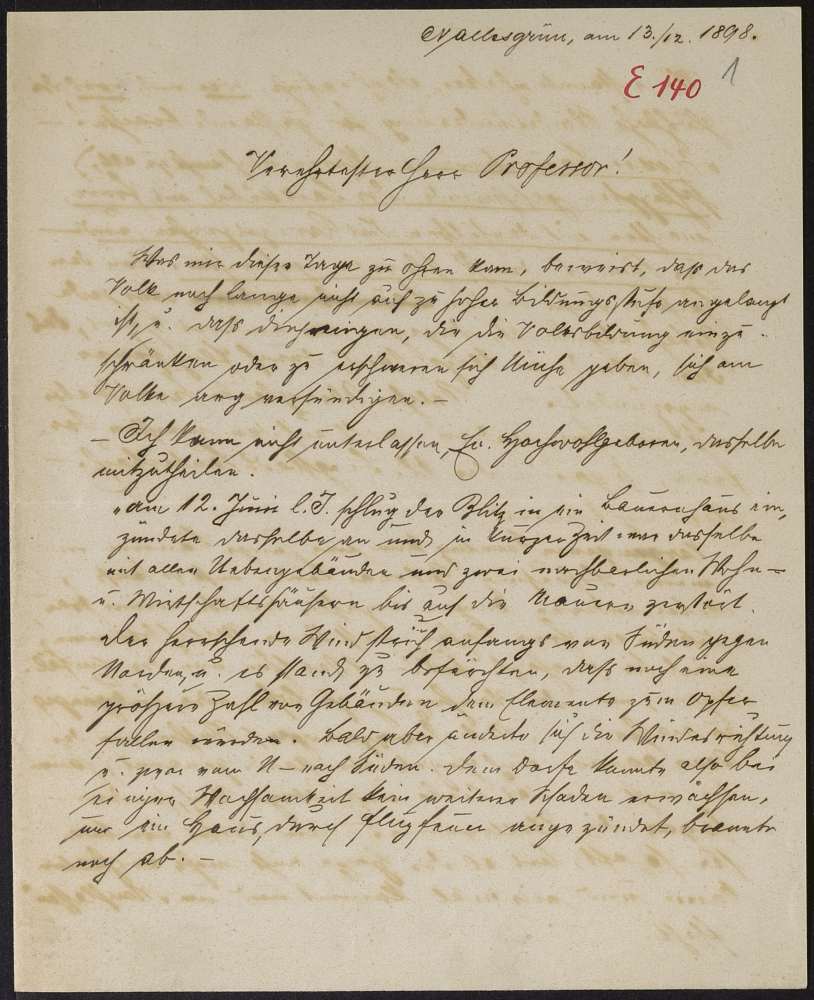 Mallesgrün, am 13./12. 1898.
E 140 1
Verehrtester Herr Professor!
Was mir dieser Tage zu Ohren kam, beweist, daß das
Volk noch lange nicht auf zu hoher Bildungsstufe angelangt
ist, u. daß diejenigen, die die Volksbildung einzu-
schränken oder zu erschweren sich Mühe geben, sich am
Volke arg versündigen. –
– Ich kann nicht unterlassen, Eu. Hochwohlgeboren, dasselbe
mitzutheilen.
„Am 12. Juni l. J. schlug der Blitz in ein Bauernhaus ein,
zündete dasselbe an und in kurzer Zeit war dasselbe
mit allen Nebengebäuden und zwei nachbarlichen Wohn-
u. Wirtschaftshäusern bis auf die Mauern zerstört.
Der herrschende Wind strich anfangs von Süden gegen
Norden, u. es stand zu befürchten, daß noch eine
größere Zahl von Gebäuden dem Elemente zum Opfer
fallen werden. Bald aber änderte sich die Windesrichtung
u. zwar von N – nach Süden. Dem Dorfe konnte also bei
einiger Wachsamkeit kein weiterer Schaden erwachsen,
nur ein Haus, durch Flugfeuer angezündet, brannte
noch ab. –